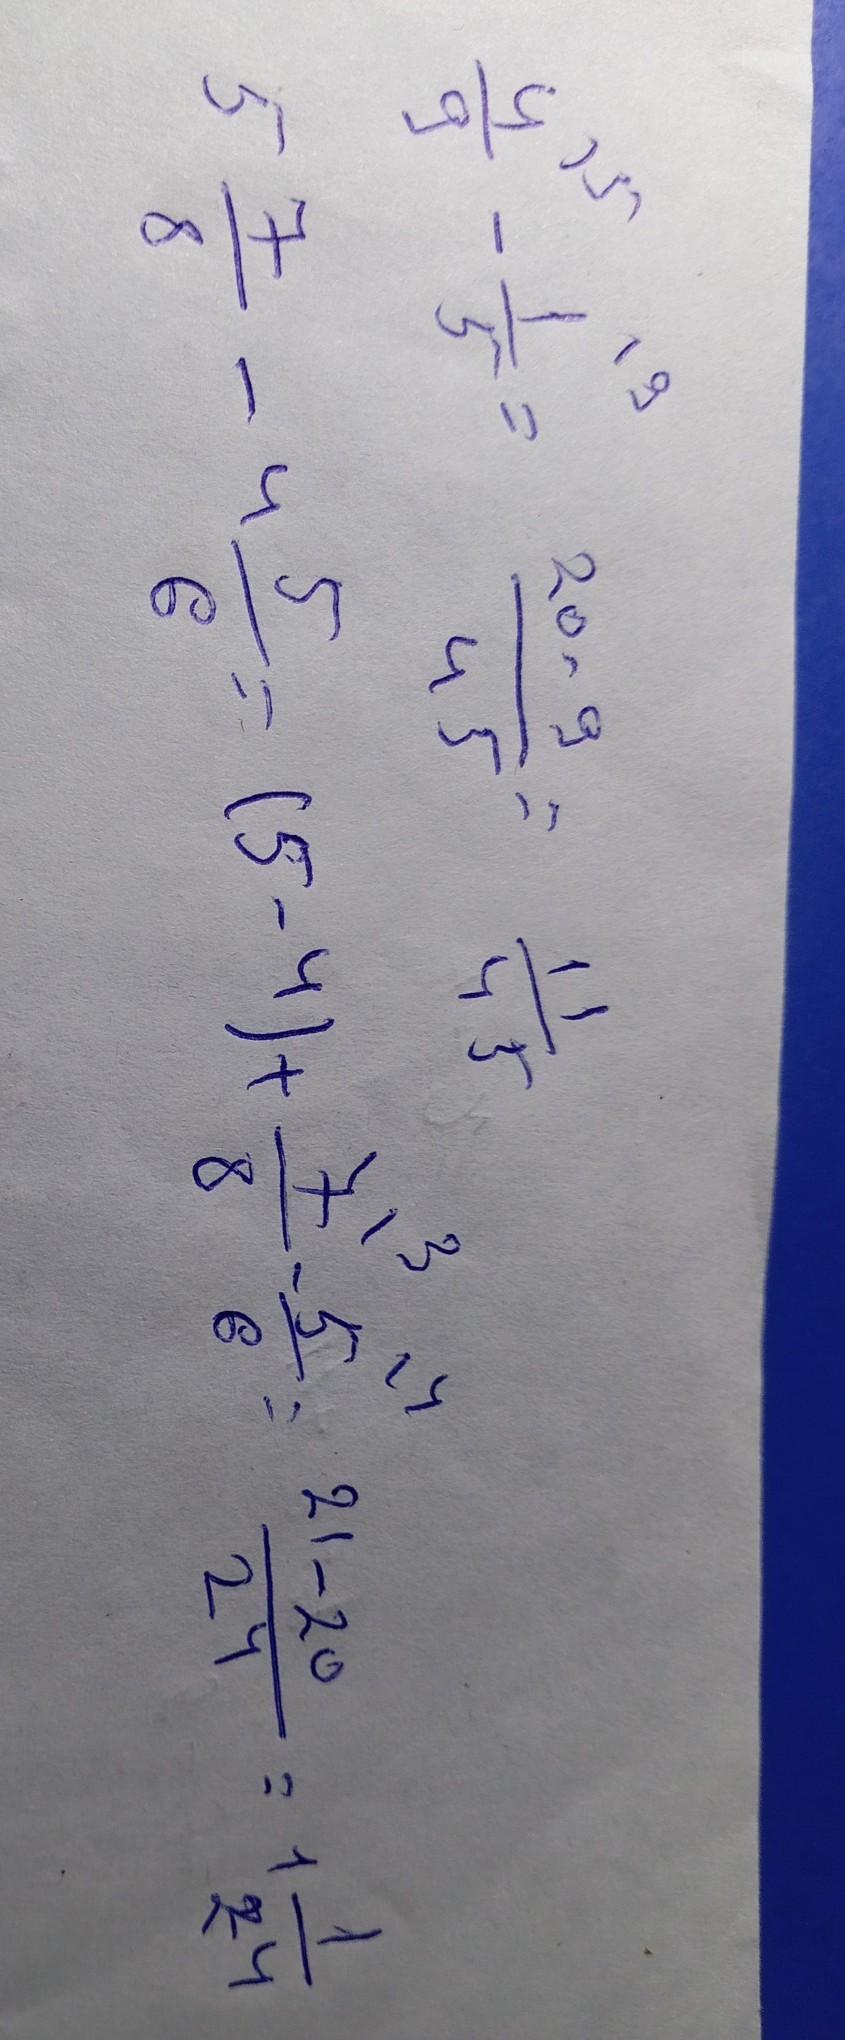 4/9 ,5 - 1/5 ,9 = 20-9/45 = 11/45
5 7/8 - 4 5/6 = (5-4)+ 7/8 ,3 - 5/6 ,4 = 21-20/24 = 1 1/24